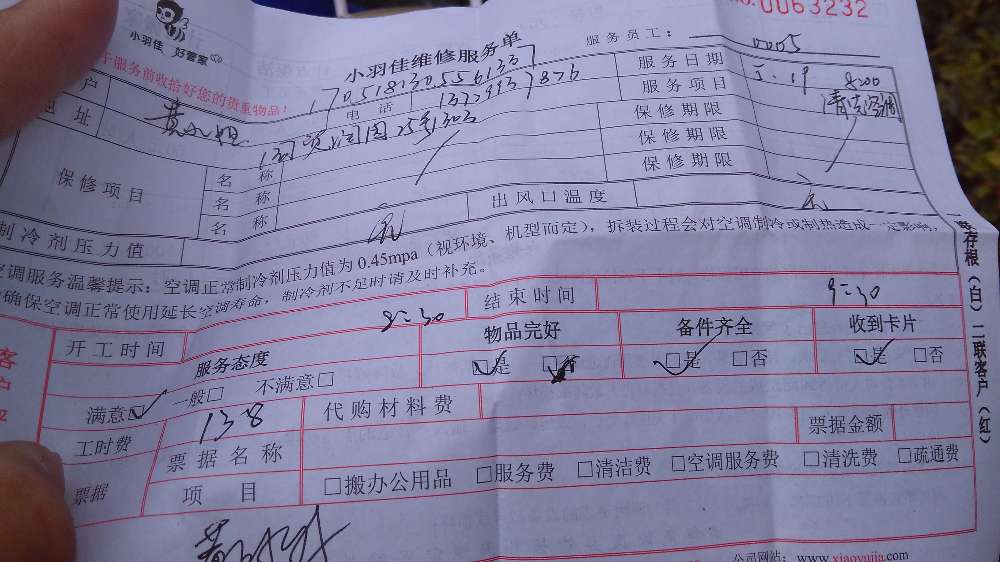 NO.0063232
小羽佳 好管家
小羽佳维修服务单
服务员工： 0005
于服务前收拾好您的贵重物品！
户 黄小姐 电话 13779937876 服务日期 8:00
地址 25号1303 服务项目
保修项目 名称 保修期限
名称 保修期限
名称 保修期限
制冷剂压力值 出风口温度
空调服务温馨提示：空调正常制冷剂压力值为0.45mpa（视环境、机型而定），拆装过程会对空调制冷或制热造成一定影响，
确保空调正常使用延长空调寿命，制冷剂不足时请及时补充。
存根（白）二联客户（红）
开工时间 8:30 结束时间 9:30
服务态度 物品完好 备件齐全 收到卡片
满意□ 一般□ 不满意□ □是 □否 □是 □否 □是 □否
工时费 138 代购材料费
票据 票据名称 票据金额
项目 □搬办公用品 □服务费 □清洁费 □空调服务费 □清洗费 □疏通费
公司网站：www.xiaoyujia.com